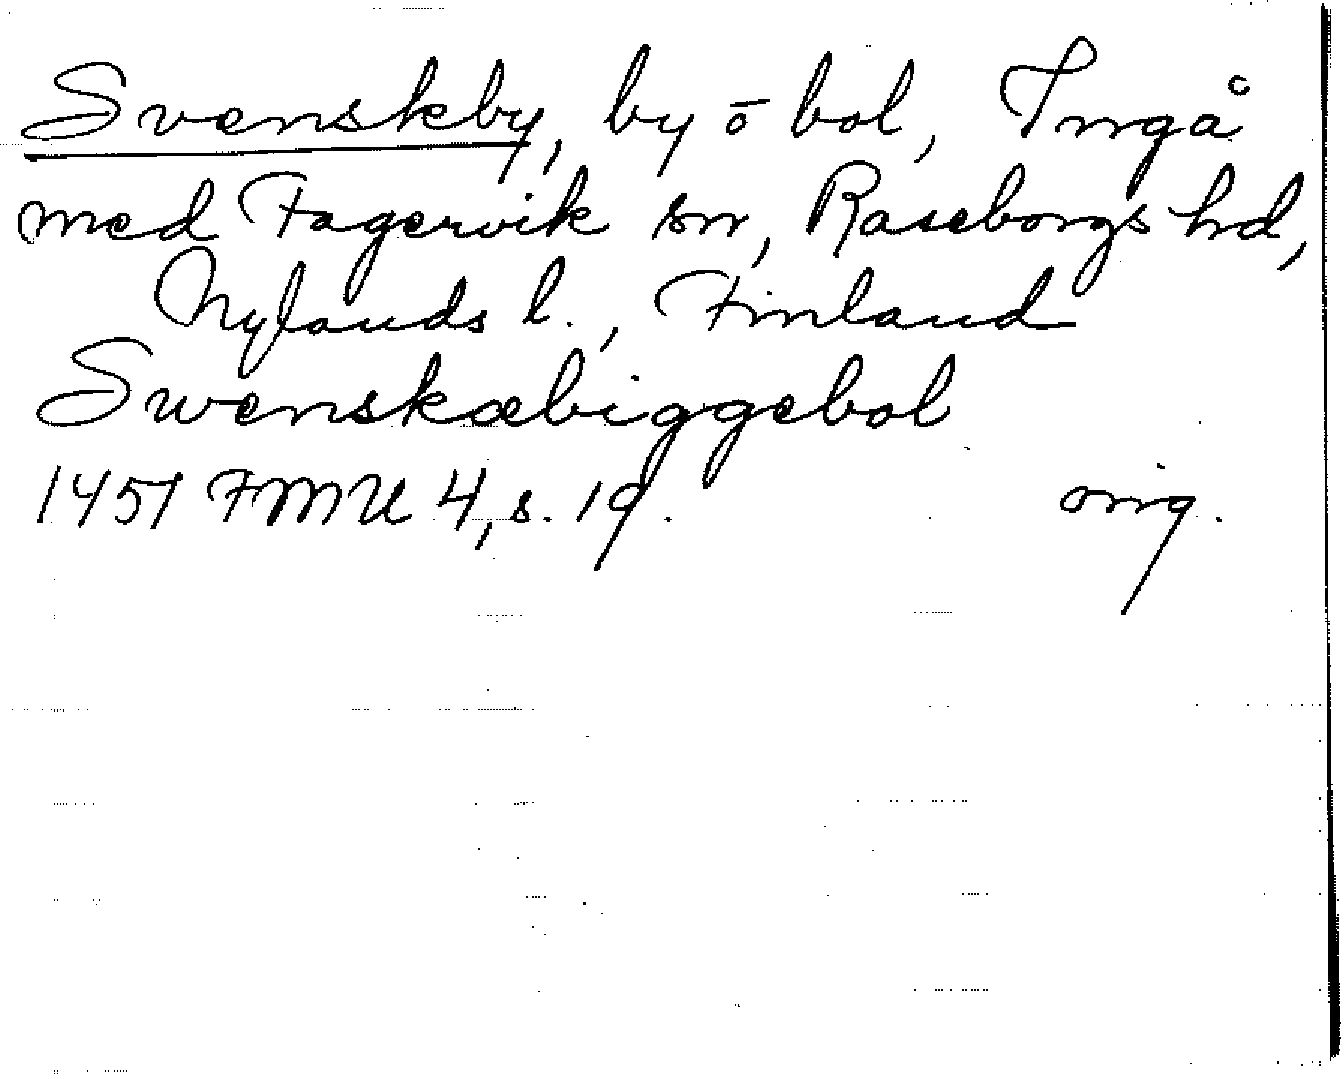 Svenskby, by o bol, Ingå
med Fagervik sn, Raseborgs hd,
Nylands l., Finland
Swenskæbiggebol
1451 FMU 4, s. 19. orig.